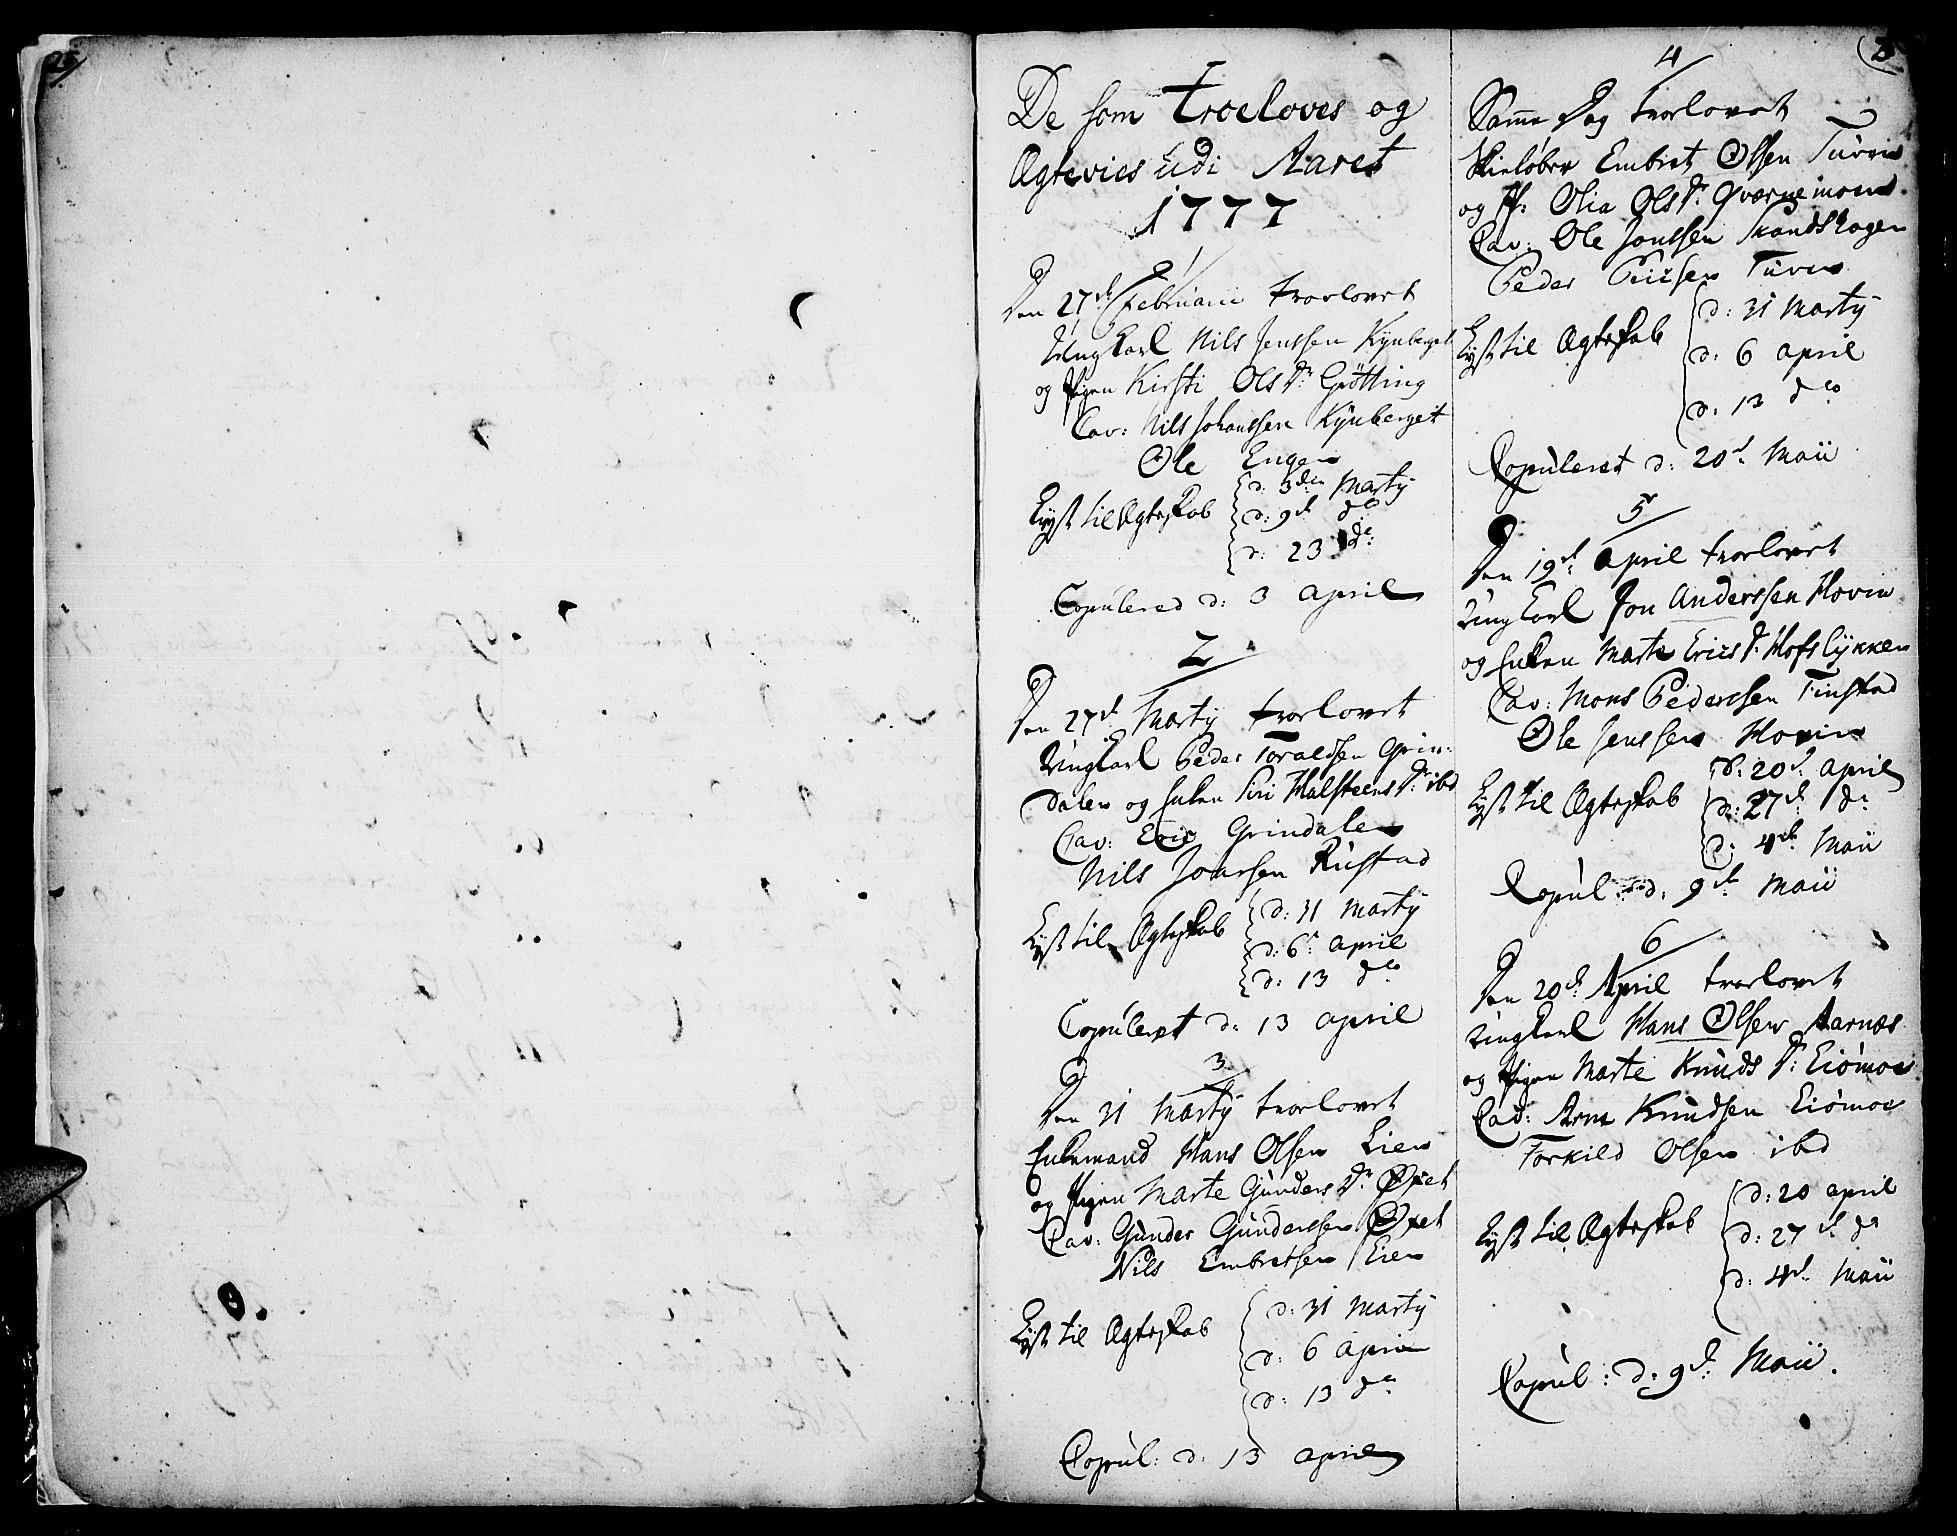 25
De som troeloves og
Ægtevies udi Aaret
1777
1
Den 27de Februarii trolovet
Ungkarl Nils Jenssen Kynberget
og Pigen Kirsti Ols Dr Grøtting
Cav: Nils Johanssen Kynberget
Ole Engen
Lyst til Ægteskab
d: 3den Marty
d: 9de do
d: 23 do:
Copulered d: 3 April
2
Den 27de Marty trolovet
Ungkarl Peder Toraldsen Grin-
dalen og Enken Siri Halsteens Dr ibd
Cav: Eric Grindalen
Nils Joensen Rustad
Lyst til Ægteskab
d: 31 Marty
d: 6 April
d: 13 do
Copuleret d: 13 April
3
Den 31 Marty trolovet
Enkemand Hans Olsen Lien
og Pigen Marte Gunders Dr Øxet
Cav: Gunder Gunderssen Øxet
Nils Embretsen Lien
Lyst til Ægteskab
d: 31 Marty
d: 6 April
d: 13 do
Copul: d: 13 April
4
Samme Dag trolovet
Skieløber Embret Olssen Turen
og P: Olia Ols Dr Qværnemoen
Cav: Ole Jonssen Strandskogen
Peder Turen
Lyst til Ægteskab
d: 31 Marty
d: 6 April
d: 13 do
Copuleret d: 20de Maii
5
Den 19de April trolovet
Ungkarl Jon Anderssen Hovin
og Enken Marte Erics Dr Hofslykken
Cav: Mons Pederssen Finstad
Ole Jenssen Hovin
Lyst til Ægteskab
d: 20de April
d: 27de do
d: 4de Maii
Copul: d: 9de Maii
6
Den 20de April trolovet
Ungkarl Hans Olsen Aarnæs
og Pigen Marte Knuds Dr: Eiømoe
Cav: Arne Knudsen Eiømoe
Torkild Olsen ibd
Lyst til Ægteskab
d: 20 April
d: 27de do
d: 4de Maii
Copul: d: 9de Maii.